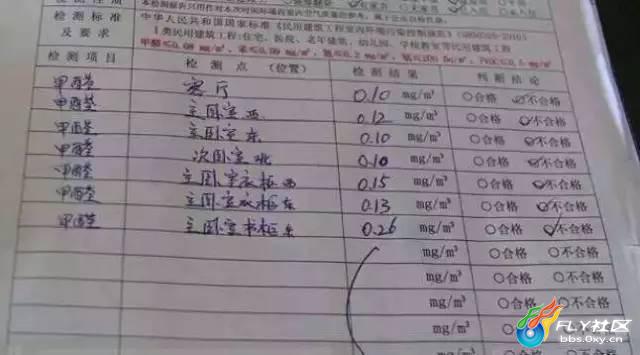 中华人民共和国国家标准《民用建筑工程室内环境污染控制规范》(GB50325-2010)
检测标准及要求
I类民用建筑工程:住宅、医院、老年建筑、幼儿园、学校教室等民用建筑工程
甲醛≤0.08 mg/m³、苯≤0.09 mg/m³、氨≤0.2 mg/m³、
检测项目 检测点(位置) 检测结果 判定结论
甲醛 客厅 0.10 mg/m³ ○合格 ☑不合格
甲醛 主卧室西 0.12 mg/m³ ○合格 ☑不合格
甲醛 主卧室东 0.10 mg/m³ ○合格 ☑不合格
甲醛 次卧室北 0.10 mg/m³ ○合格 ☑不合格
甲醛 主卧室衣柜西 0.15 mg/m³ ○合格 ☑不合格
甲醛 主卧室衣柜东 0.13 mg/m³ ○合格 ☑不合格
甲醛 主卧室书柜东 0.26 mg/m³ ○合格 ☑不合格
mg/m³ ○合格 ○不合格
mg/m³ ○合格 ○不合格
mg/m³ ○合格 ○不合格
mg/m³ ○合格 ○不合格
mg/m³ ○合格
FLY社区
bbs.0xy.cn